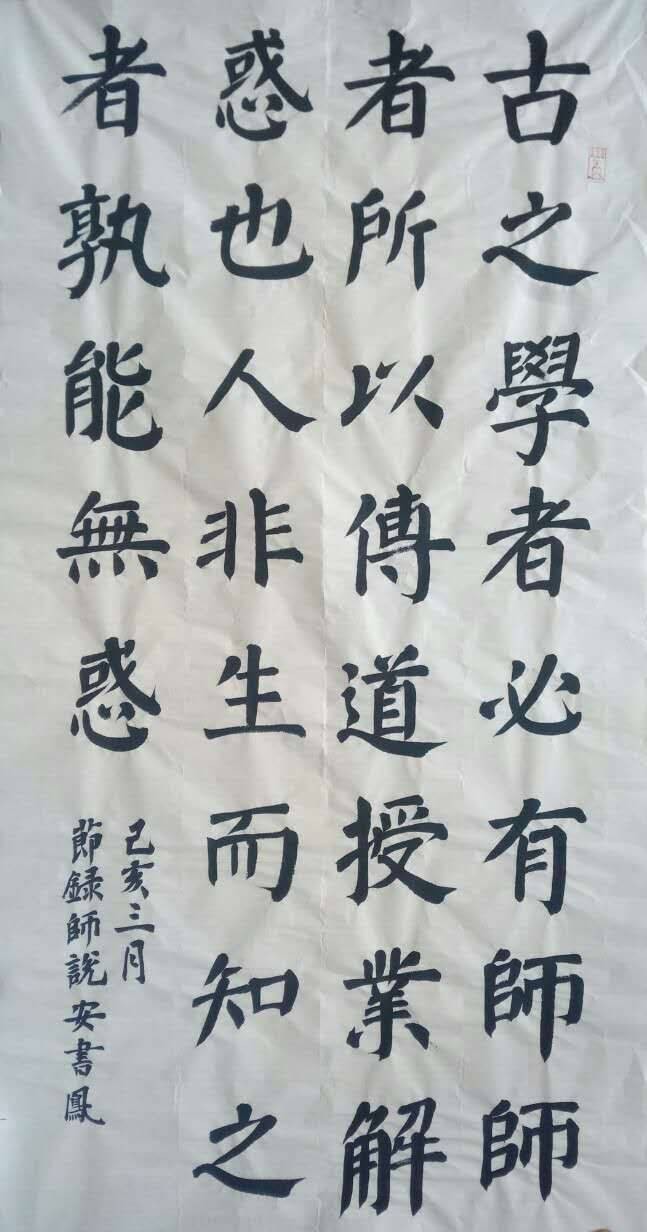 古之學者必有師師
者所以傳道授業解
惑也人非生而知之
者孰能無惑
己亥三月
節録師說安書鳳